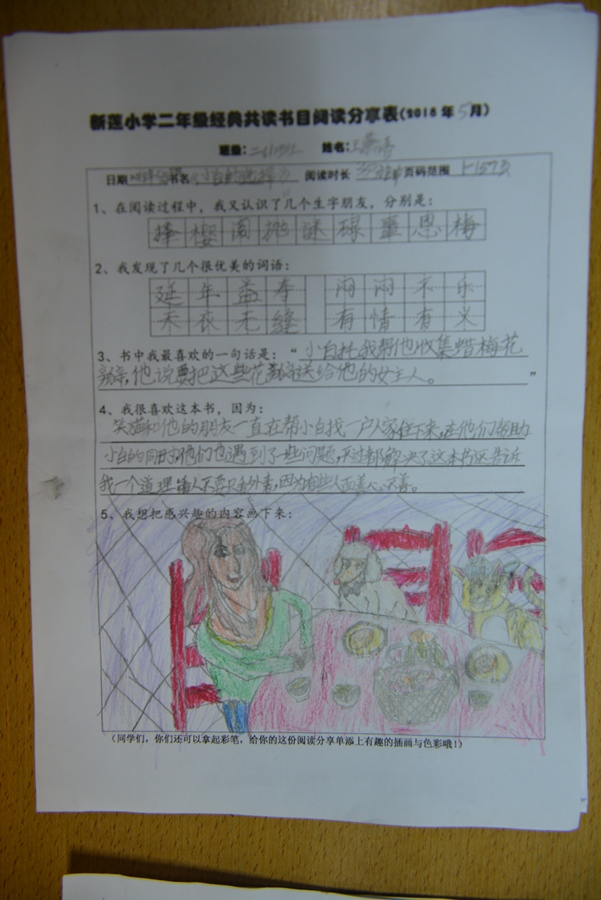 新莲小学二年级经典共读书目阅读分享表(2018年5月)
班级: 姓名:王
日期 书名《小白的选择》 阅读时长 页码范围 1-157页
1、在阅读过程中，我又认识了几个生字朋友，分别是：
择 樱 阁 挑 谜 碌 噩 恩 梅
2、我发现了几个很优美的词语：
延 年 益 寿 闷 闷 不 乐
天 衣 无 缝 有 情 有 义
3、书中我最喜欢的一句话是：“小白托我帮他收集蜡梅花
他说要把这些花 送给他的女主人。”
4、我很喜欢这本书，因为：
笑猫和他的朋友一直在帮小白找一户人家住下来,在他们帮助
小白的同时,他们也遇到了一些问题,不过都解决了这本书还告诉
我一个道理 人不要只看外表,因为有些人面美心不善。
5、我想把感兴趣的内容画下来：
(同学们，你们还可以拿起彩笔，给你的这份阅读分享单添上有趣的插画与色彩哦!)